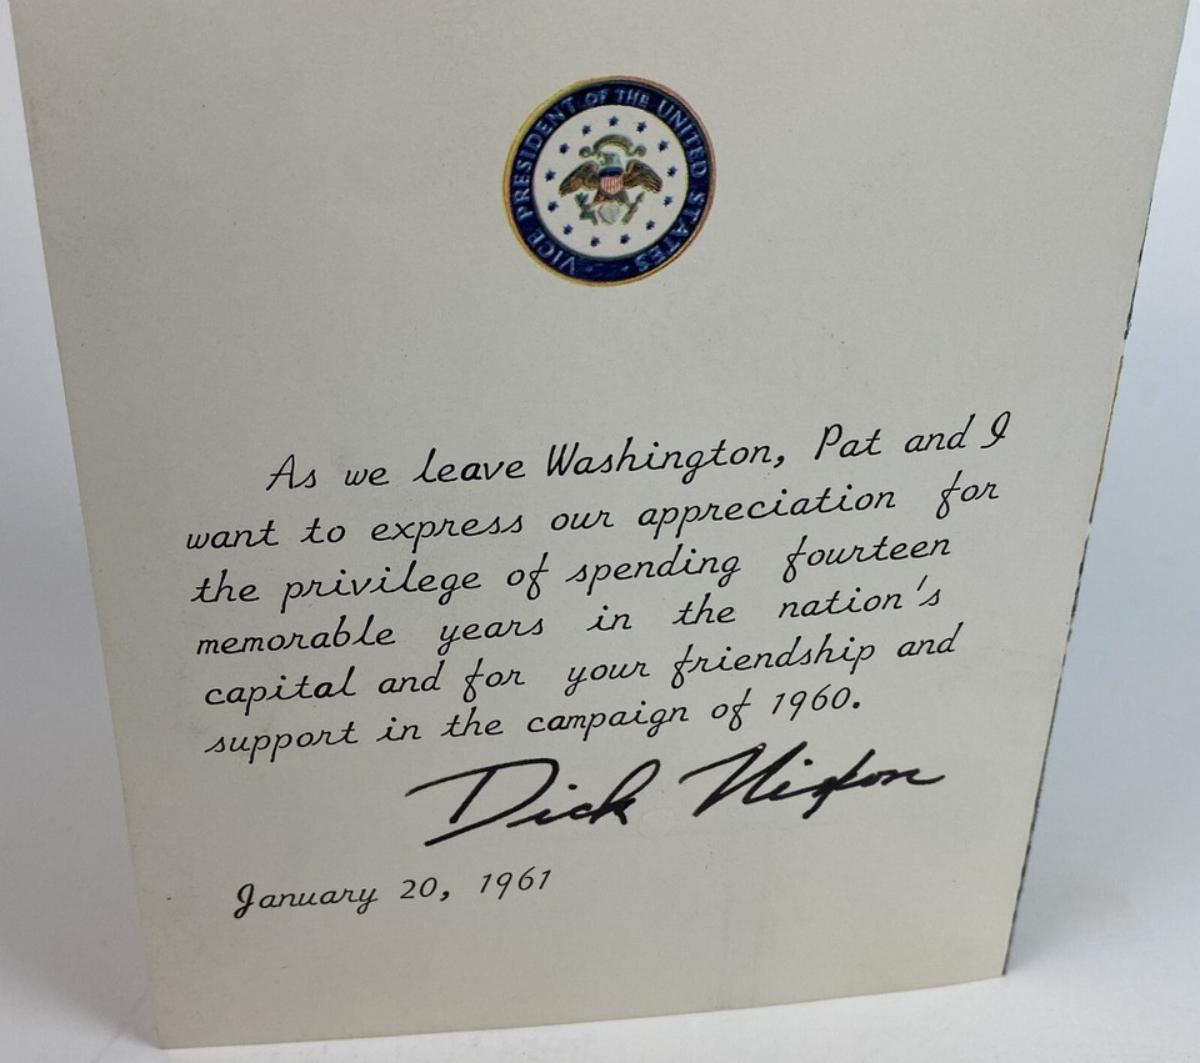 VICE PRESIDENT OF THE UNITED STATES
As we leave Washington, Pat and I
want to express our appreciation for
the privilege of spending fourteen
memorable years in the nation's
capital and for your friendship and
support in the campaign of 1960.
Dick Nixon
January 20, 1961